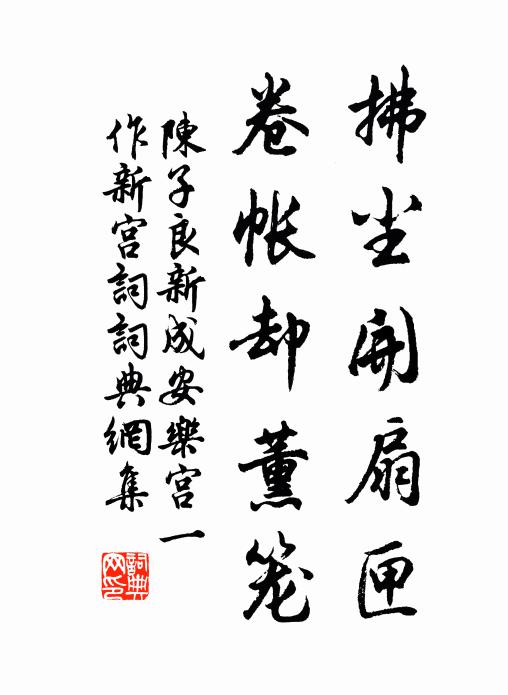 拂尘開扇匣
卷帐却薰笼
陳子良新成安樂宫一
作新宫詞詞典網集
詞典网印